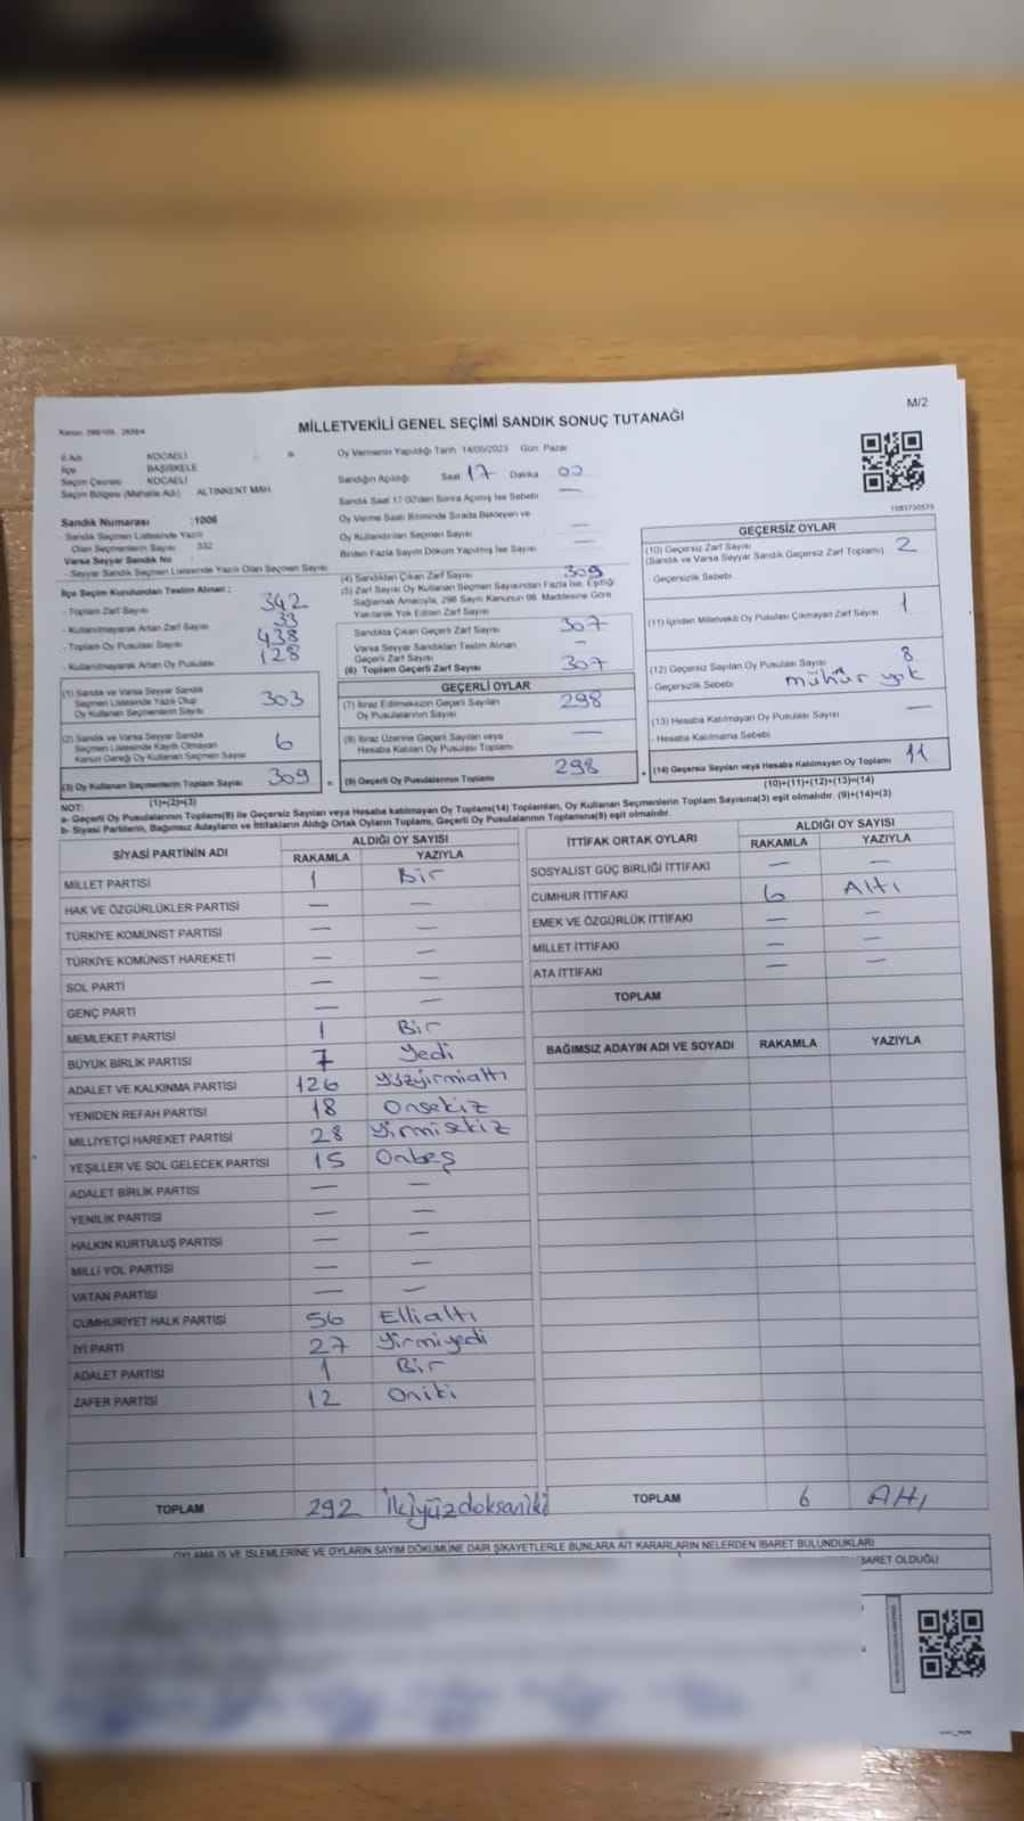 M/2
MİLLETVEKİLİ GENEL SEÇİMİ SANDIK SONUÇ TUTANAĞI
İl Adı KOCAELİ
İlçe BAŞİSKELE
Seçim Çevresi KOCAELİ
Seçim Bölgesi (Mahalle Adı) ALTINKENT MAH.
Oy Vermenin Yapıldığı Tarih 14/05/2023 Gün Pazar
Sandığın Açıldığı Saat 17 Dakika 00
Sandık Saat 17:00'den Sonra Açılmış İse Sebebi —
Oy Verme Saati Bitiminde Sırada Bekleyen ve
Oy Kullandırılan Seçmen Sayısı —
Birden Fazla Sayım Döküm Yapılmış İse Sayısı —
Sandık Numarası : 1006
Sandık Seçmen Listesinde Yazılı
Olan Seçmenlerin Sayısı 332
Varsa Seyyar Sandık No
- Seyyar Sandık Seçmen Listesinde Yazılı Olan Seçmen Sayısı
İlçe Seçim Kurulundan Teslim Alınan :
- Toplam Zarf Sayısı 342
- Kullanılmayarak Artan Zarf Sayısı 33
- Toplam Oy Pusulası Sayısı 438
- Kullanılmayarak Artan Oy Pusulası 128
(1) Sandık ve Varsa Seyyar Sandık
Seçmen Listesinde Yazılı Olup
Oy Kullanan Seçmenlerin Sayısı 303
(2) Sandık ve Varsa Seyyar Sandık
Seçmen Listesinde Kayıtlı Olmayan
Kanun Gereği Oy Kullanan Seçmen Sayısı 6
(3) Oy Kullanan Seçmenlerin Toplam Sayısı 309
(1)+(2)=(3)
(4) Sandıktan Çıkan Zarf Sayısı 309
(5) Zarf Sayısı Oy Kullanan Seçmen Sayısından Fazla İse, Eşitliği
Sağlamak Amacıyla, 298 Sayılı Kanunun 98. Maddesine Göre
Yakılarak Yok Edilen Zarf Sayısı
Sandıkta Çıkan Geçerli Zarf Sayısı 307
Varsa Seyyar Sandıktan Teslim Alınan
Geçerli Zarf Sayısı —
(6) Toplam Geçerli Zarf Sayısı 307
GEÇERLİ OYLAR
(7) İtiraz Edilmeksizin Geçerli Sayılan
Oy Pusulalarının Sayısı 298
(8) İtiraz Üzerine Geçerli Sayılan veya
Hesaba Katılan Oy Pusulası Toplamı —
(9) Geçerli Oy Pusulalarının Toplamı 298
GEÇERSİZ OYLAR
(10) Geçersiz Zarf Sayısı
(Sandık ve Varsa Seyyar Sandık Geçersiz Zarf Toplamı) 2
Geçersizlik Sebebi
(11) İçinden Milletvekili Oy Pusulası Çıkmayan Zarf Sayısı 1
(12) Geçersiz Sayılan Oy Pusulası Sayısı 8
Geçersizlik Sebebi mühür yok
(13) Hesaba Katılmayan Oy Pusulası Sayısı —
- Hesaba Katılmama Sebebi
(14) Geçersiz Sayılan veya Hesaba Katılmayan Oy Toplamı 11
(10)+(11)+(12)+(13)=(14)
NOT:
a- Geçerli Oy Pusulalarının Toplamı(9) ile Geçersiz Sayılan veya Hesaba katılmayan Oy Toplamı(14) Toplamları, Oy Kullanan Seçmenlerin Toplam Sayısına(3) eşit olmalıdır. (9)+(14)=(3)
b- Siyasi Partilerin, Bağımsız Adayların ve İttifakların Aldığı Ortak Oyların Toplamı, Geçerli Oy Pusulalarının Toplamına(9) eşit olmalıdır.
SİYASİ PARTİNİN ADI ALDIĞI OY SAYISI
RAKAMLA YAZIYLA
MİLLET PARTİSİ 1 Bir
HAK VE ÖZGÜRLÜKLER PARTİSİ — —
TÜRKİYE KOMÜNİST PARTİSİ — —
TÜRKİYE KOMÜNİST HAREKETİ — —
SOL PARTİ — —
GENÇ PARTİ — —
MEMLEKET PARTİSİ 1 Bir
BÜYÜK BİRLİK PARTİSİ 7 Yedi
ADALET VE KALKINMA PARTİSİ 126 Yüzyirmialtı
YENİDEN REFAH PARTİSİ 18 Onsekiz
MİLLİYETÇİ HAREKET PARTİSİ 28 Yirmisekiz
YEŞİLLER VE SOL GELECEK PARTİSİ 15 Onbeş
ADALET BİRLİK PARTİSİ — —
YENİLİK PARTİSİ — —
HALKIN KURTULUŞ PARTİSİ — —
MİLLİ YOL PARTİSİ — —
VATAN PARTİSİ — —
CUMHURİYET HALK PARTİSİ 56 Ellialtı
İYİ PARTİ 27 Yirmiyedi
ADALET PARTİSİ 1 Bir
ZAFER PARTİSİ 12 Oniki
TOPLAM 292 İkiyüzdoksaniki
İTTİFAK ORTAK OYLARI ALDIĞI OY SAYISI
RAKAMLA YAZIYLA
SOSYALİST GÜÇ BİRLİĞİ İTTİFAKI — —
CUMHUR İTTİFAKI 6 Altı
EMEK VE ÖZGÜRLÜK İTTİFAKI — —
MİLLET İTTİFAKI — —
ATA İTTİFAKI — —
TOPLAM
BAĞIMSIZ ADAYIN ADI VE SOYADI RAKAMLA YAZIYLA
TOPLAM 6 Altı
OYLAMA İŞ VE İŞLEMLERİNE VE OYLARIN SAYIM DÖKÜMÜNE DAİR ŞİKAYETLERLE BUNLARA AİT KARARLARIN NELERDEN İBARET BULUNDUKLARI
BARET OLDUĞU